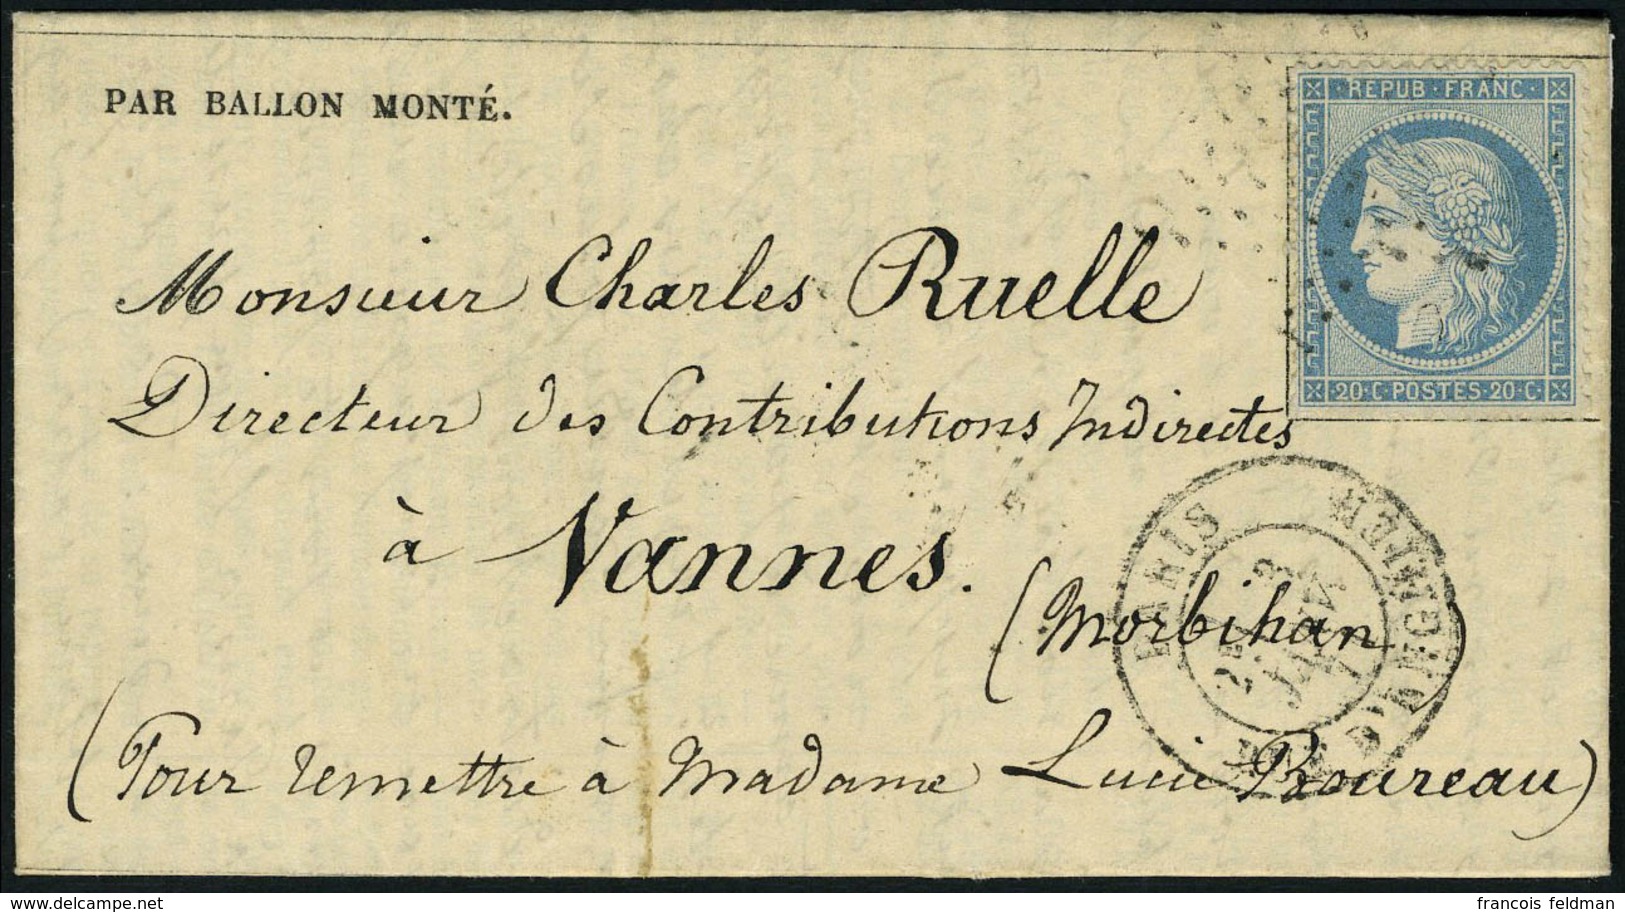 PAR BALLON MONTÉ.
REPUB · FRANC ·
20 · C · POSTES · 20 · C ·
Monsieur Charles Ruelle
Directeur des Contributions Indirectes
à Vannes.
(Morbihan)
PARIS
(Pour remettre à Madame Lucie Boureau)
www.delcampe.net
francois feldman